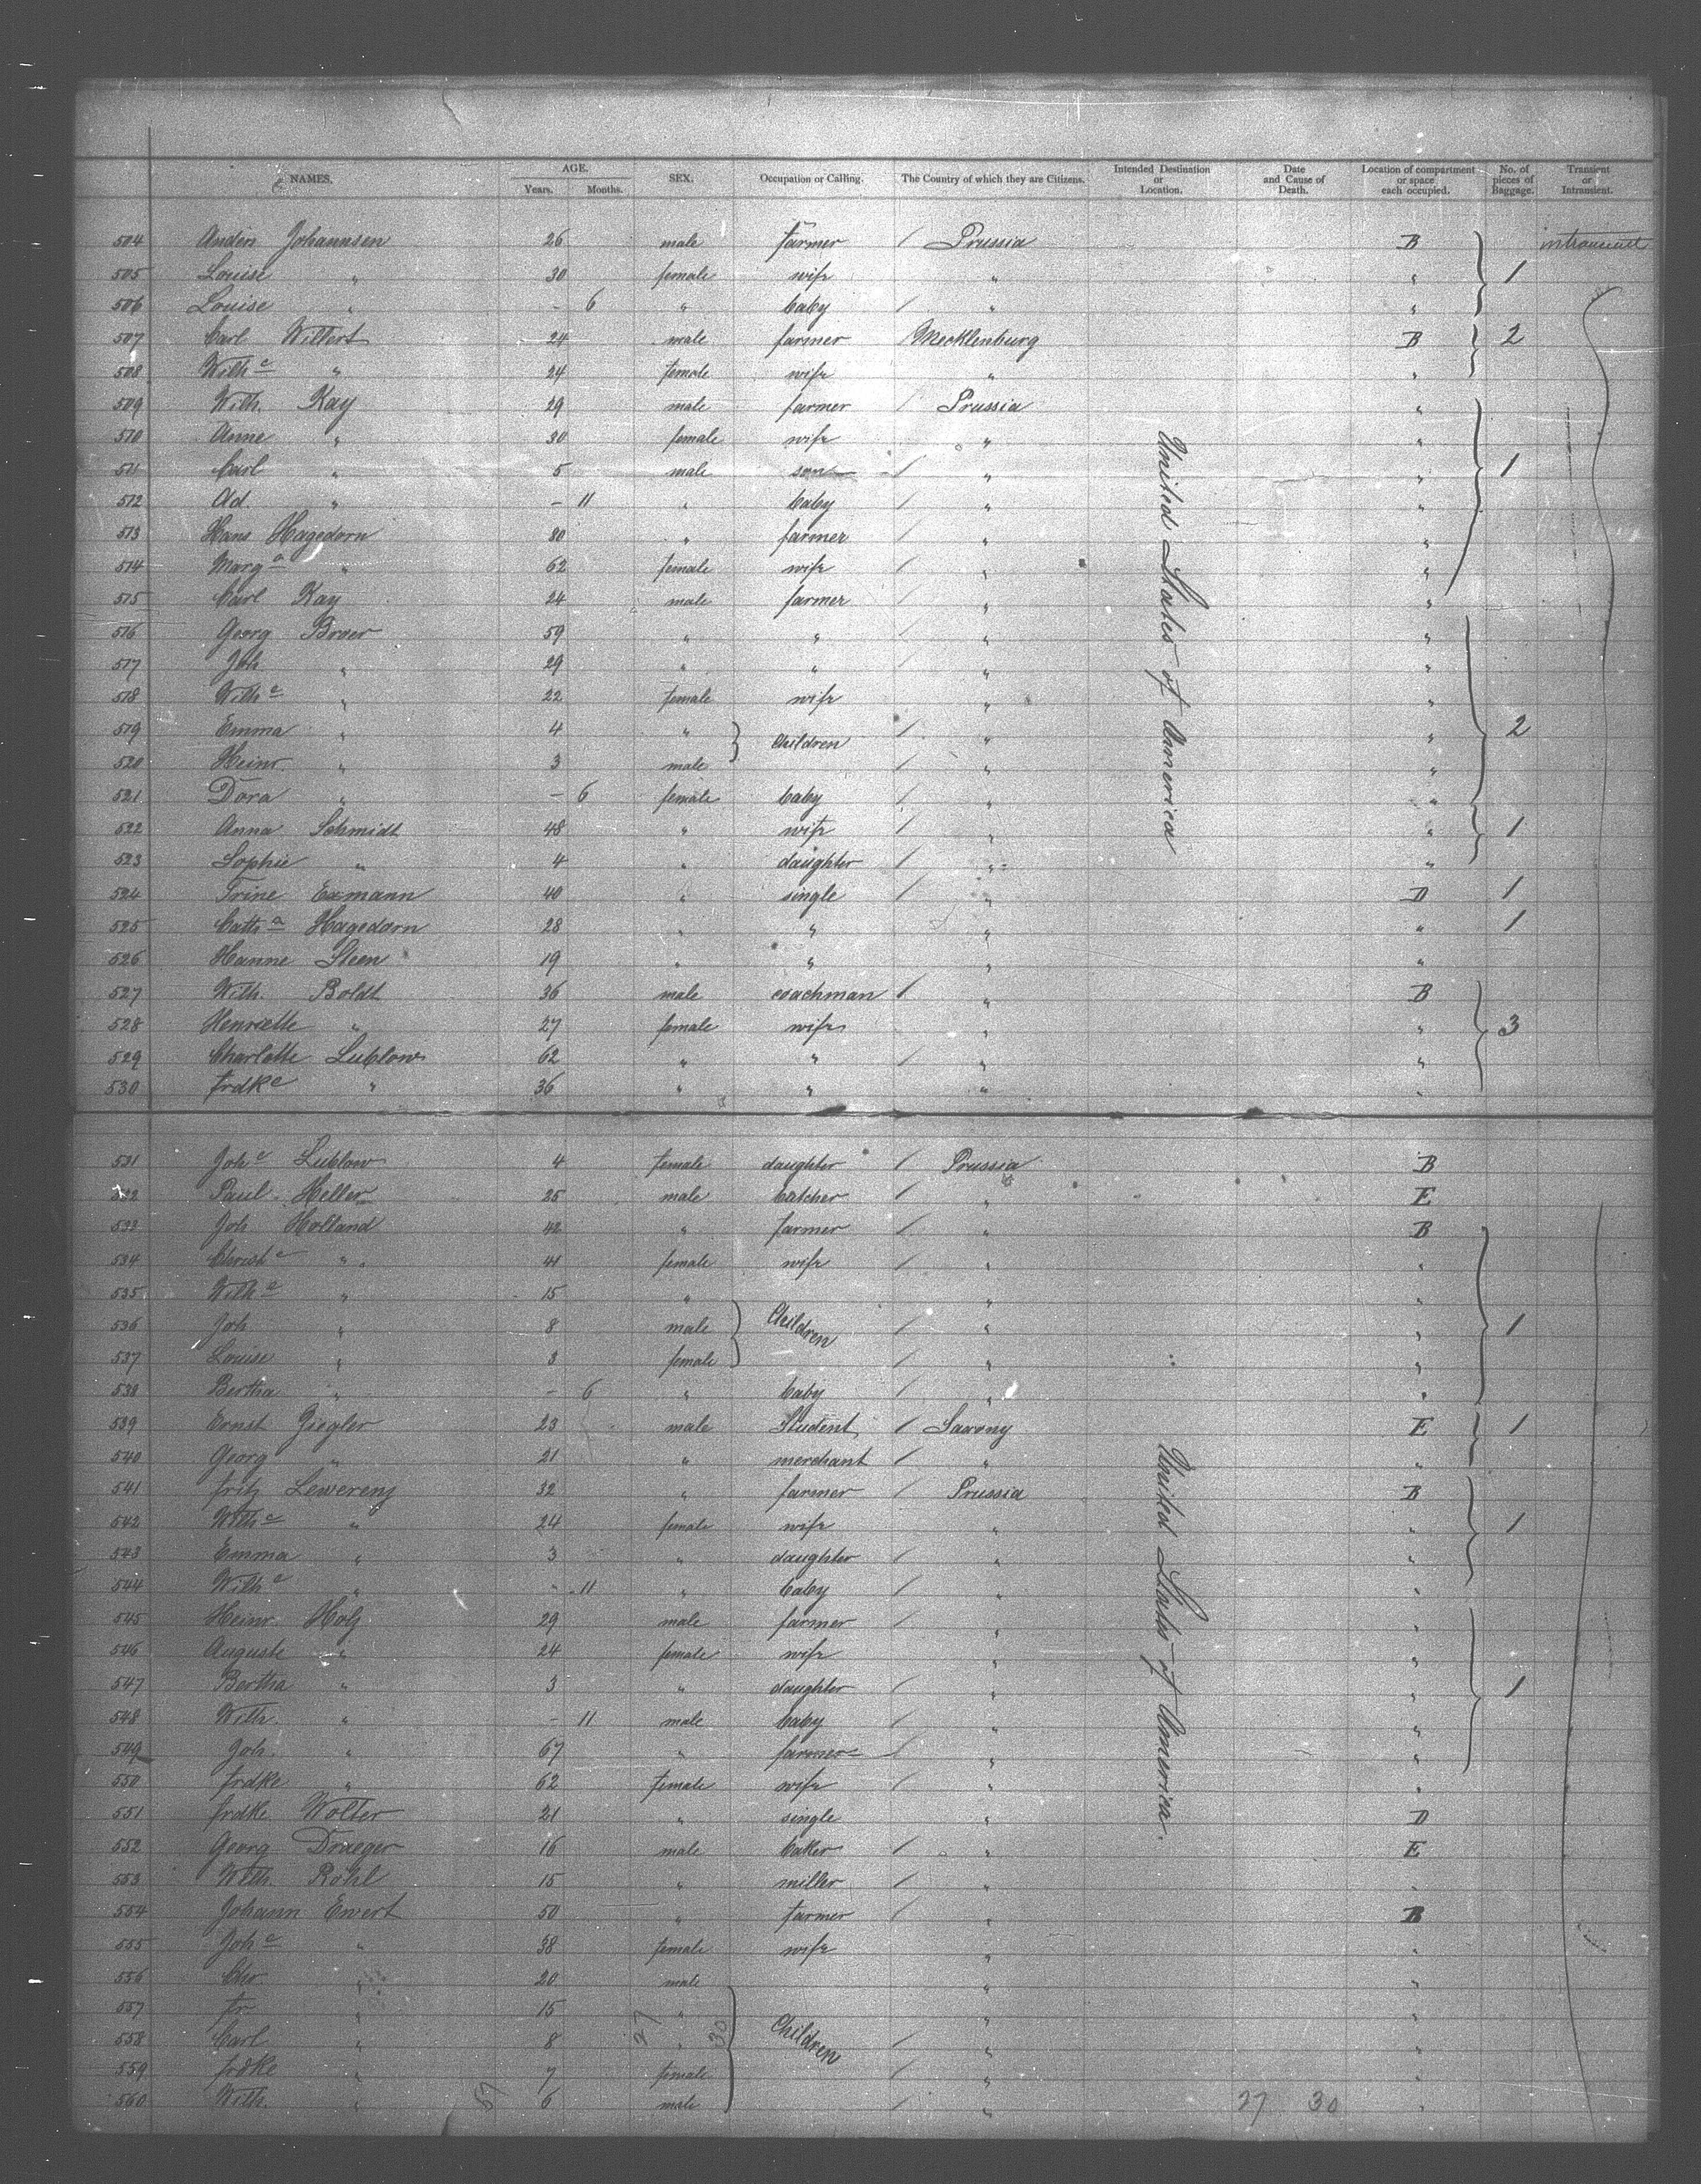 NAMES. AGE. Years. Months. SEX. Occupation or Calling. The Country of which they are Citizens. Intended Destination or Location. Date and Cause of Death. Location of compartment or space each occupied. No. of pieces of Baggage. Transient or Intransient.
504 Anders Johannsen 26 male farmer / Prussia B intransient
505 Louise " 30 female wife " " 1
506 Louise " - 6 " baby / " "
507 Carl Wittert 24 male farmer / Mecklenburg B 2
508 Wilhe " 24 female wife " "
509 Wilh. Kay 29 male farmer / Prussia "
510 Anne " 30 female wife " "
511 Carl " 5 male son / " " 1
512 Ad. " - 11 " baby / " "
513 Hans Hagedorn 80 " farmer / " "
514 Marga " 62 female wife / " "
515 Carl Kay 24 male farmer / " "
516 Georg Broer 59 " " / " "
517 Joh. " 29 " " / " "
518 Wilhe " 22 female wife " "
519 Emma " 4 " Children / " " 2
520 Heinr. " 3 male / " "
521 Dora " - 6 female baby / " "
522 Anna Schmidt 48 " wife / " " 1
523 Sophie " 4 " daughter / " "
524 Trine Exmann 40 " single / " D 1
525 Catha Hagedorn 28 " " " " 1
526 Hanne Steen 19 " " " "
527 Wilh. Boldt 36 male coachman / " B
528 Henriette " 27 female wife " " 3
529 Charlotte Lublow 62 " " / " "
530 frdke " 36 " " " "
United States of America
531 Johe Lublow 4 female daughter / Prussia B
532 Paul Heller 25 male butcher / " E
533 Joh Holland 42 " farmer / " B
534 Christe " 41 female wife / " "
535 Wilhe " 15 " " "
536 Joh " 8 male Children / " " 1
537 Louise " 3 female / " "
538 Bertha " - 6 " baby / " "
539 Ernst Ziegler 23 male Student / Saxony E 1
540 Georg " 21 " merchant / " "
541 fritz Lewerenz 32 " farmer / Prussia B
542 Wilhe " 24 female wife " " 1
543 Emma " 3 " daughter / " "
544 Wilhe " - 11 " baby / " "
545 Heinr. Holz 29 male farmer / " "
546 Auguste " 24 female wife " "
547 Bertha " 3 " daughter / " " 1
548 Wilh. " - 11 male baby / " "
549 Joh. " 67 " farmer / " "
550 frdke " 62 female wife / " "
551 frdke Wolter 21 " single " D
552 Georg Draeger 16 male baker / " E
553 Wilh. Röhl 15 " miller / " "
554 Johann Ewert 50 " farmer / " B
555 Johe " 38 female wife " "
556 Chr " 20 male " "
557 fr. " 15 " " "
558 Carl " 8 " Children / " "
559 frdke " 7 female / " "
560 Wilh. " 6 male / " "
United States of America.
27 30
57 27 30